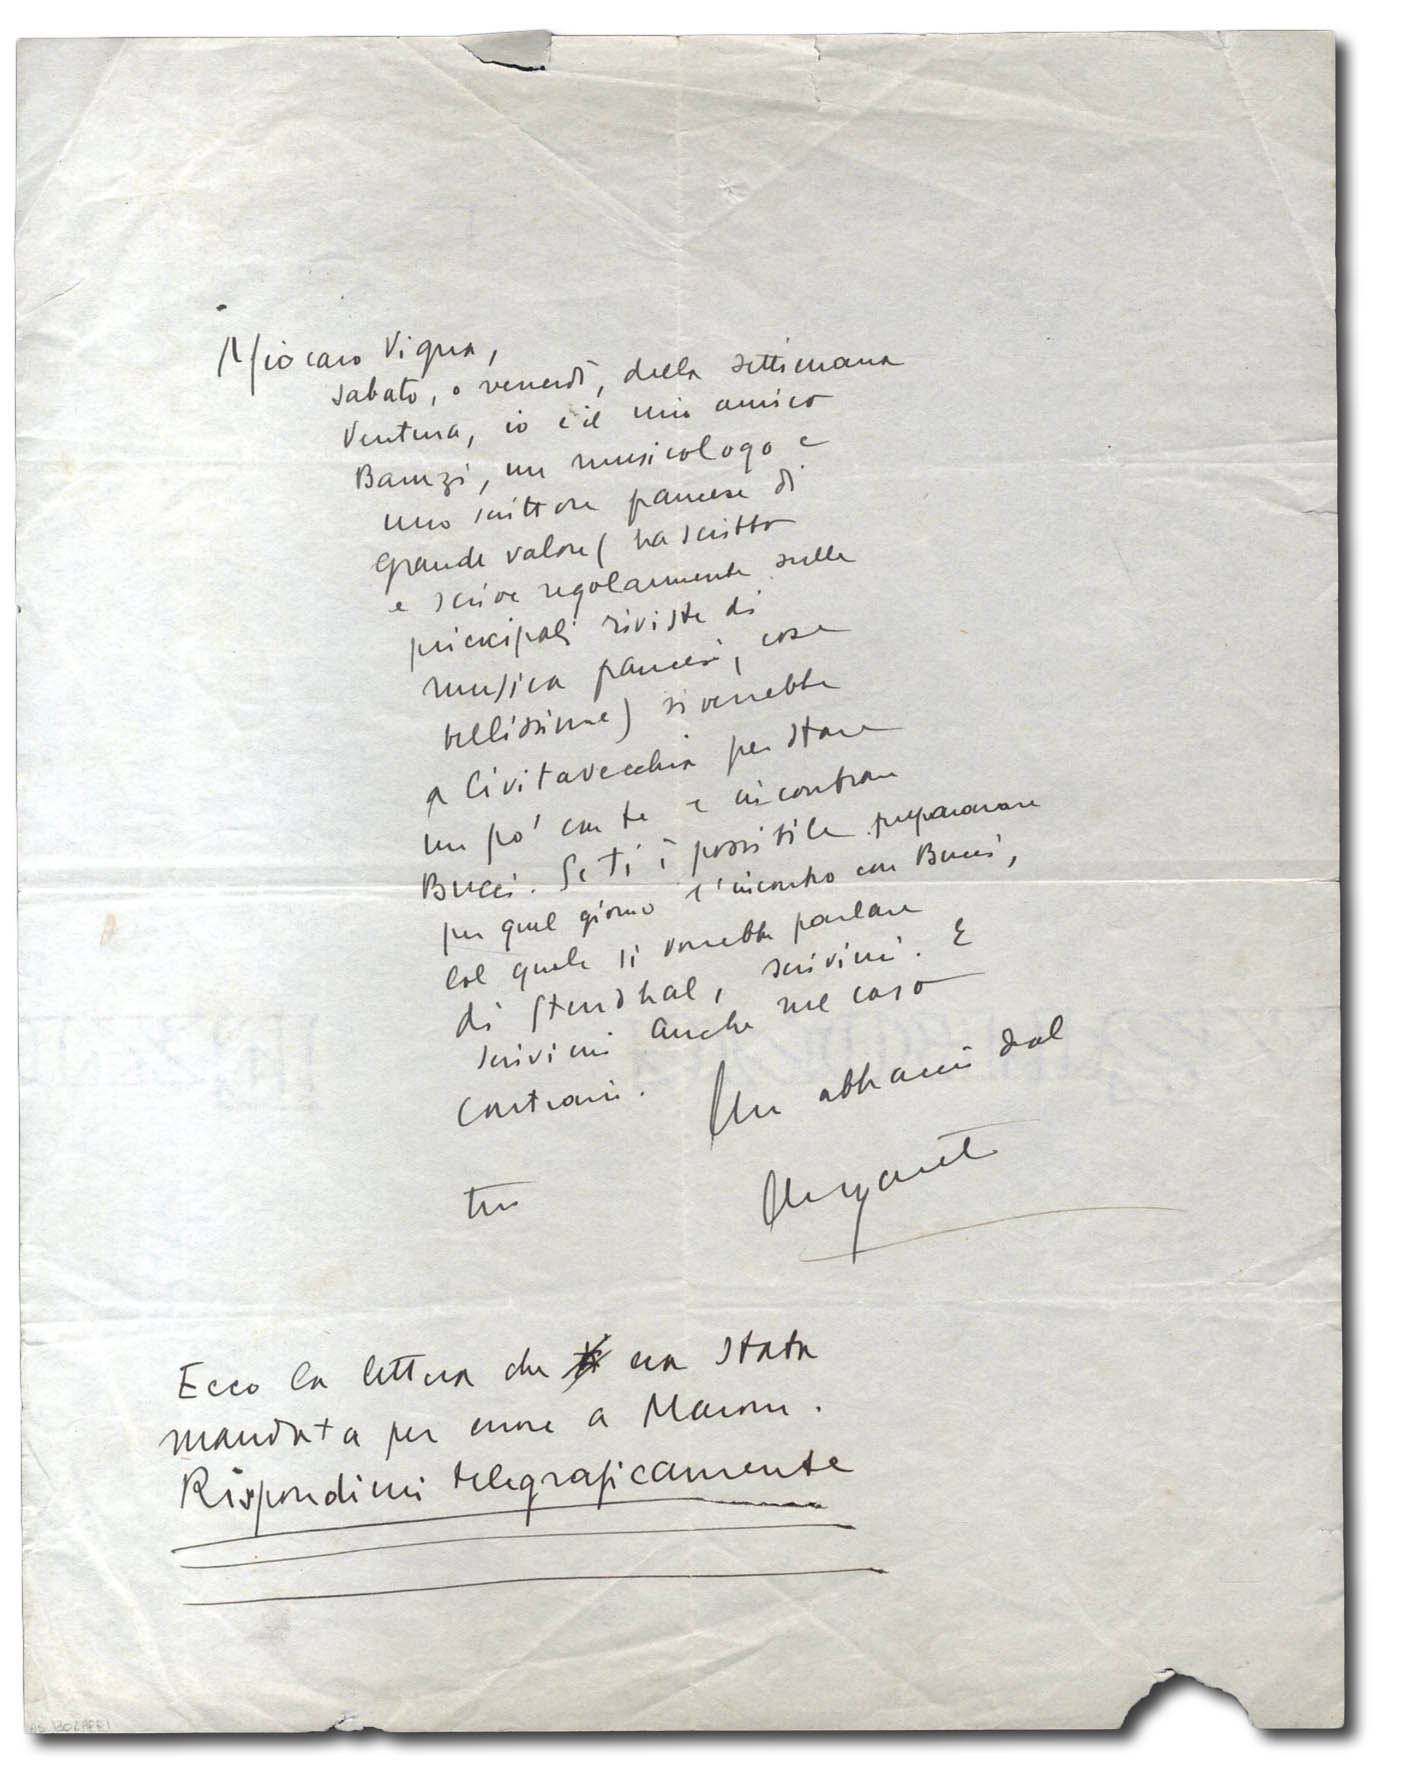 Mio caro Vigna,
sabato, o venerdì, della settimana
ventura, io e il mio amico
Baruzi, un musicologo e
uno scrittore francese di
grande valore (ha scritto
e scrive regolarmente sulle
principali riviste di
musica francesi, cose
bellissime) si verrebbe
a Civitavecchia per stare
un po' con te e incontrare
Bucci. Se ti è possibile prepararare
per quel giorno l'incontro con Bucci,
col quale si vorrebbe parlare
di Stendhal, scrivimi. E
scrivimi anche nel caso
contrario.
Un abbraccio dal
tuo
Ungaretti
Ecco la lettera che era stata
mandata per errore a Maroni.
Rispondimi telegraficamente
BOLAFFI